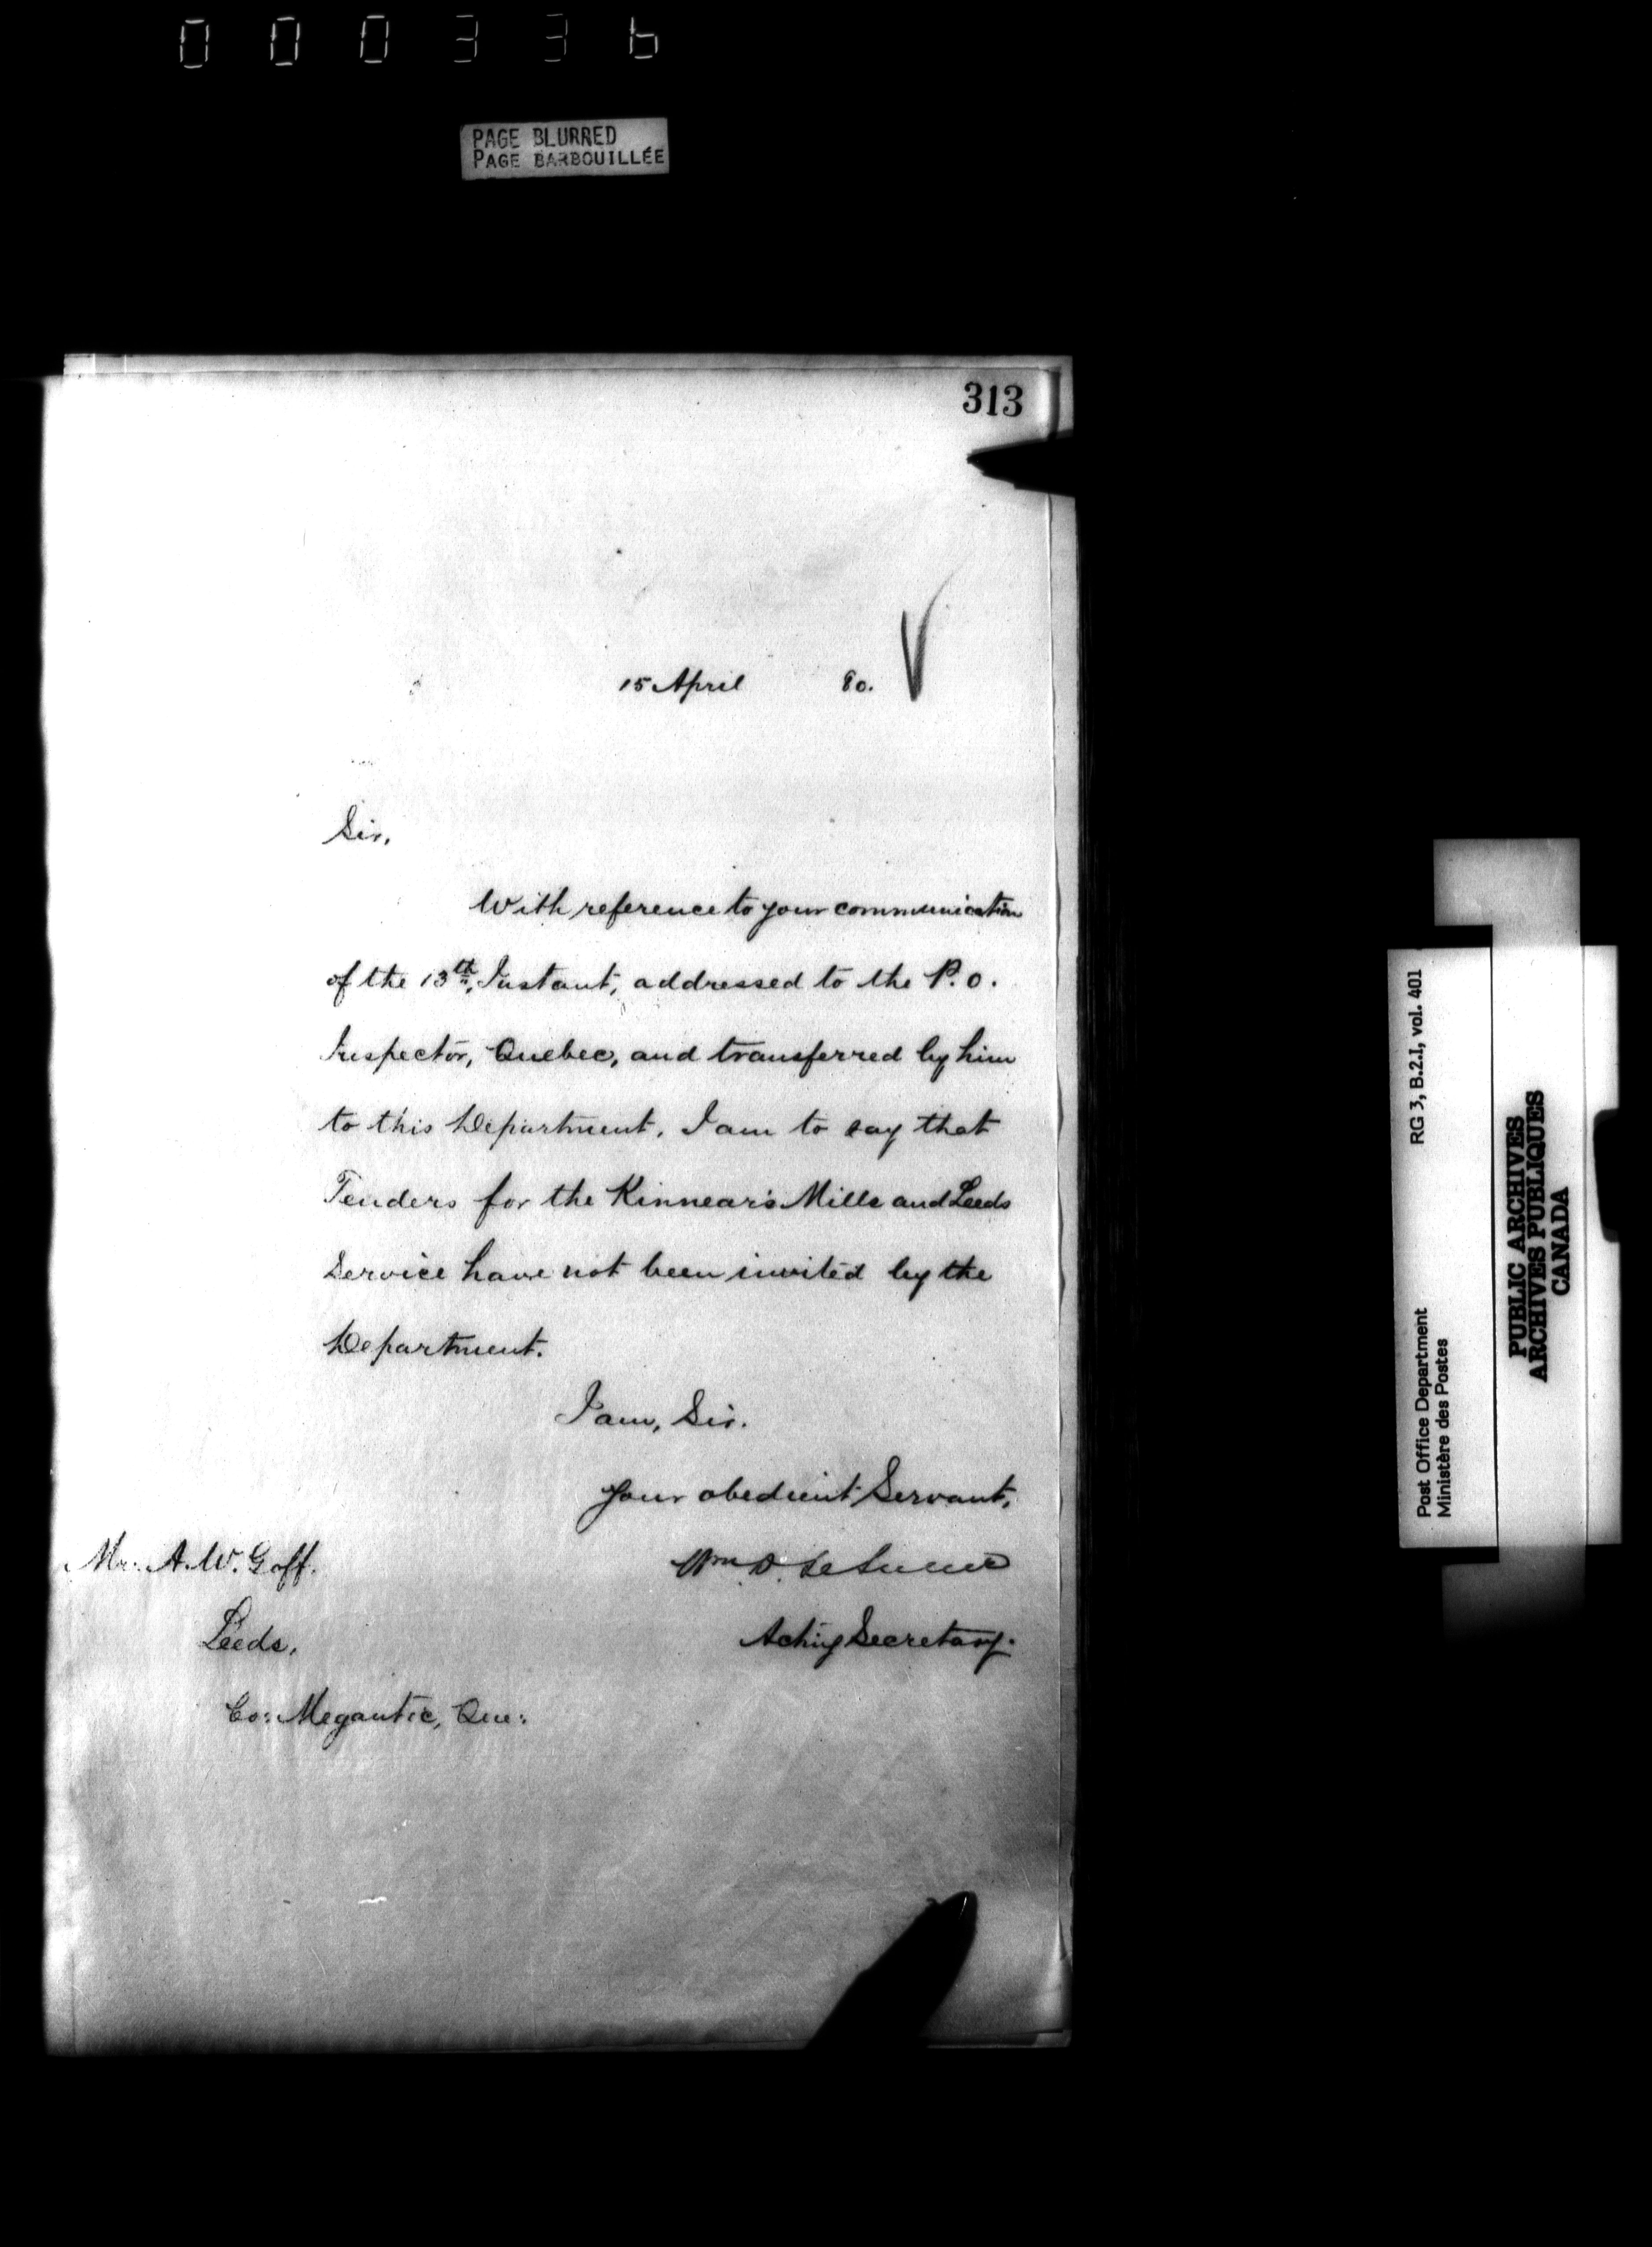 000336
PAGE BLURRED
PAGE BARBOUILLÉE
313
15 April 80.
Sir,
With reference to your communication
of the 13th, Instant, addressed to the P.O.
Inspector, Quebec, and transferred by him
to this Department, I am to say that
Tenders for the Kinnear's Mills and Leeds
Service have not been invited by the
Department.
I am, Sir.
Your obedient Servant,
Mr. A. W. Goff.
Wm D. LeSueur
Leeds,
Acting Secretary.
Co: Megantic, Que:
Post Office Department RG 3, B.2.I, vol. 401
Ministère des Postes
PUBLIC ARCHIVES
ARCHIVES PUBLIQUES
CANADA